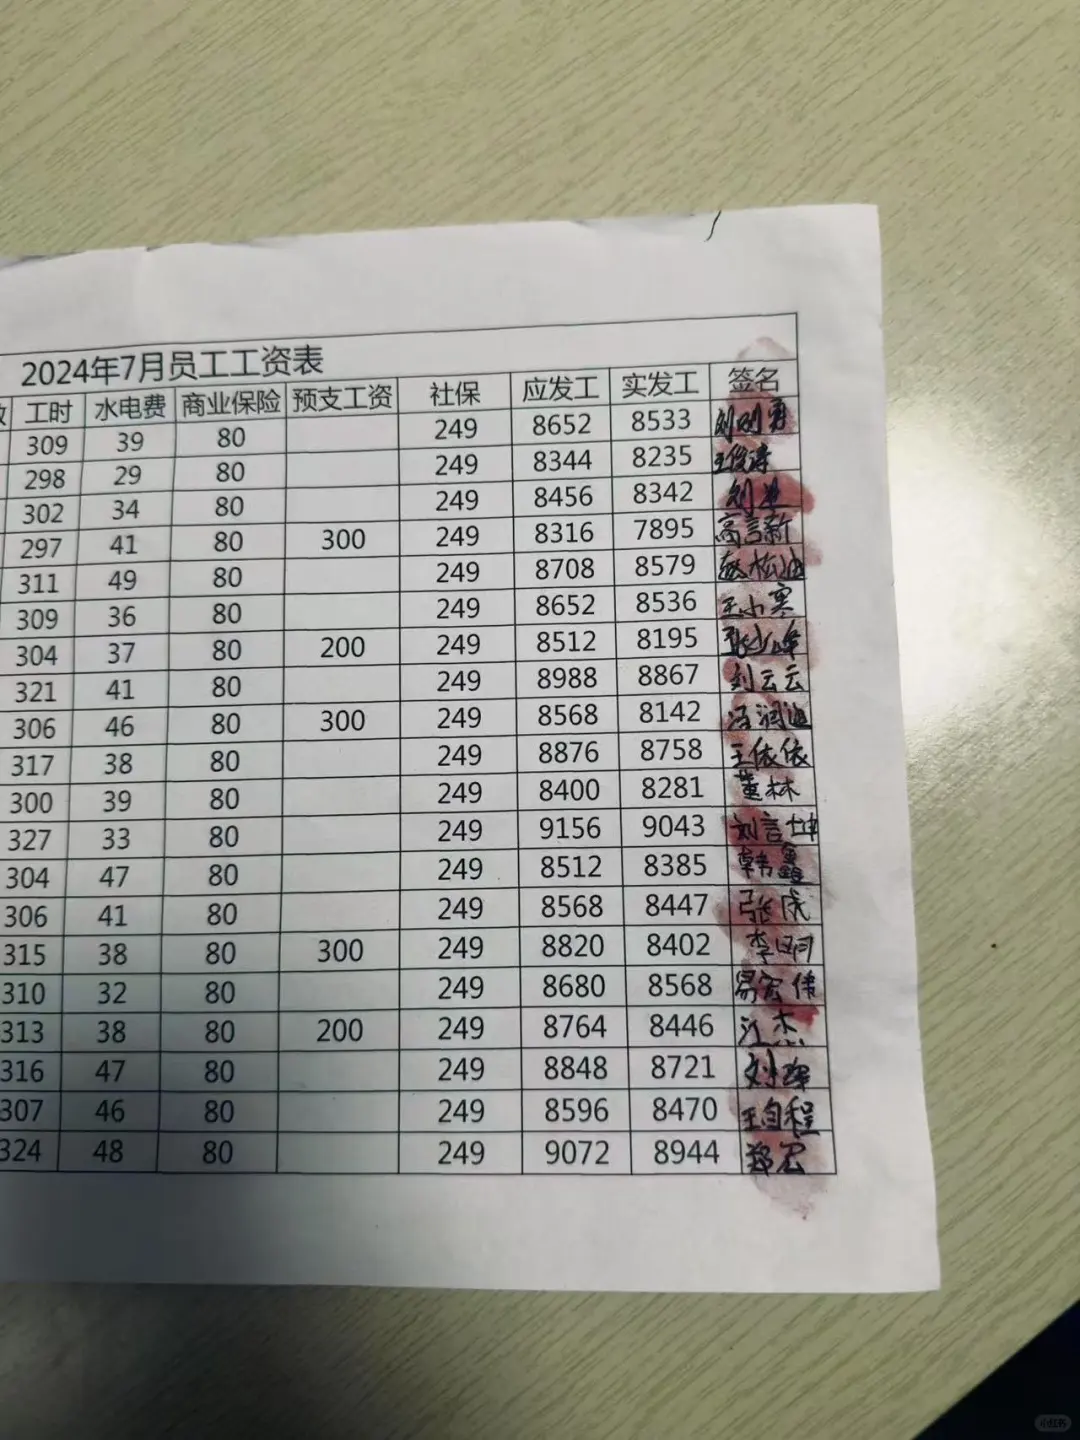 2024年7月员工工资表
工时 水电费 商业保险 预支工资 社保 应发工 实发工 签名
309 39 80 249 8652 8533 刘刚勇
298 29 80 249 8344 8235 王俊涛
302 34 80 249 8456 8342
297 41 80 300 249 8316 7895 高言新
311 49 80 249 8708 8579
309 36 80 249 8652 8536 王小寒
304 37 80 200 249 8512 8195 张少峰
321 41 80 249 8988 8867 刘云云
306 46 80 300 249 8568 8142
317 38 80 249 8876 8758 王依依
300 39 80 249 8400 8281 董林
327 33 80 249 9156 9043 刘言坤
304 47 80 249 8512 8385 韩鑫
306 41 80 249 8568 8447 张虎
315 38 80 300 249 8820 8402 李明
310 32 80 249 8680 8568 易宏伟
313 38 80 200 249 8764 8446 江杰
316 47 80 249 8848 8721
307 46 80 249 8596 8470 王自程
324 48 80 249 9072 8944 郑宏
小红书